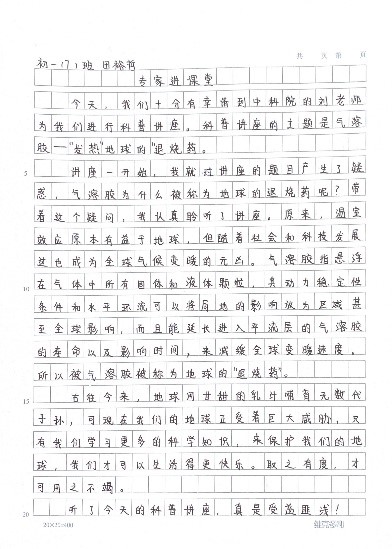 共 页 第 页
初一(7)班 田
专家进课堂
今天，我们十分有幸请到中科院的刘老师
为我们进行科普讲座。科普讲座的主题是气溶
胶——"发热"地球的"退烧药。
5 讲座一开始，我就对讲座的题目产生了疑
惑，气溶胶为什么被称为地球的退烧药呢？带
着这个疑问，我认真聆听了讲座。原来，温室
效应原本有益于地球，但随着社会和科技发展
这也成为全球气候变暖的元凶。气溶胶指悬浮
10 在气体中所有固体和液体颗粒，其动力稳定性
条件和水平环流可以将局地的影响放为区域甚
至全球影响，而且能延长进入平流层的气溶胶
的寿命以及影响时间，来减缓全球变暖进度。
所以被气溶胶被称为地球的"退烧药"。
15 古往今来，地球用甘甜的乳汁哺育无数代
子孙，可现在我们的地球正受着巨大威胁，只
有我们学习更多的科学知识，来保护我们的地
球，我们才可以生活得更快乐。取之有度，才
可用之不竭。
20 听了今天的科普讲座，真是受益匪浅！
20×20=400